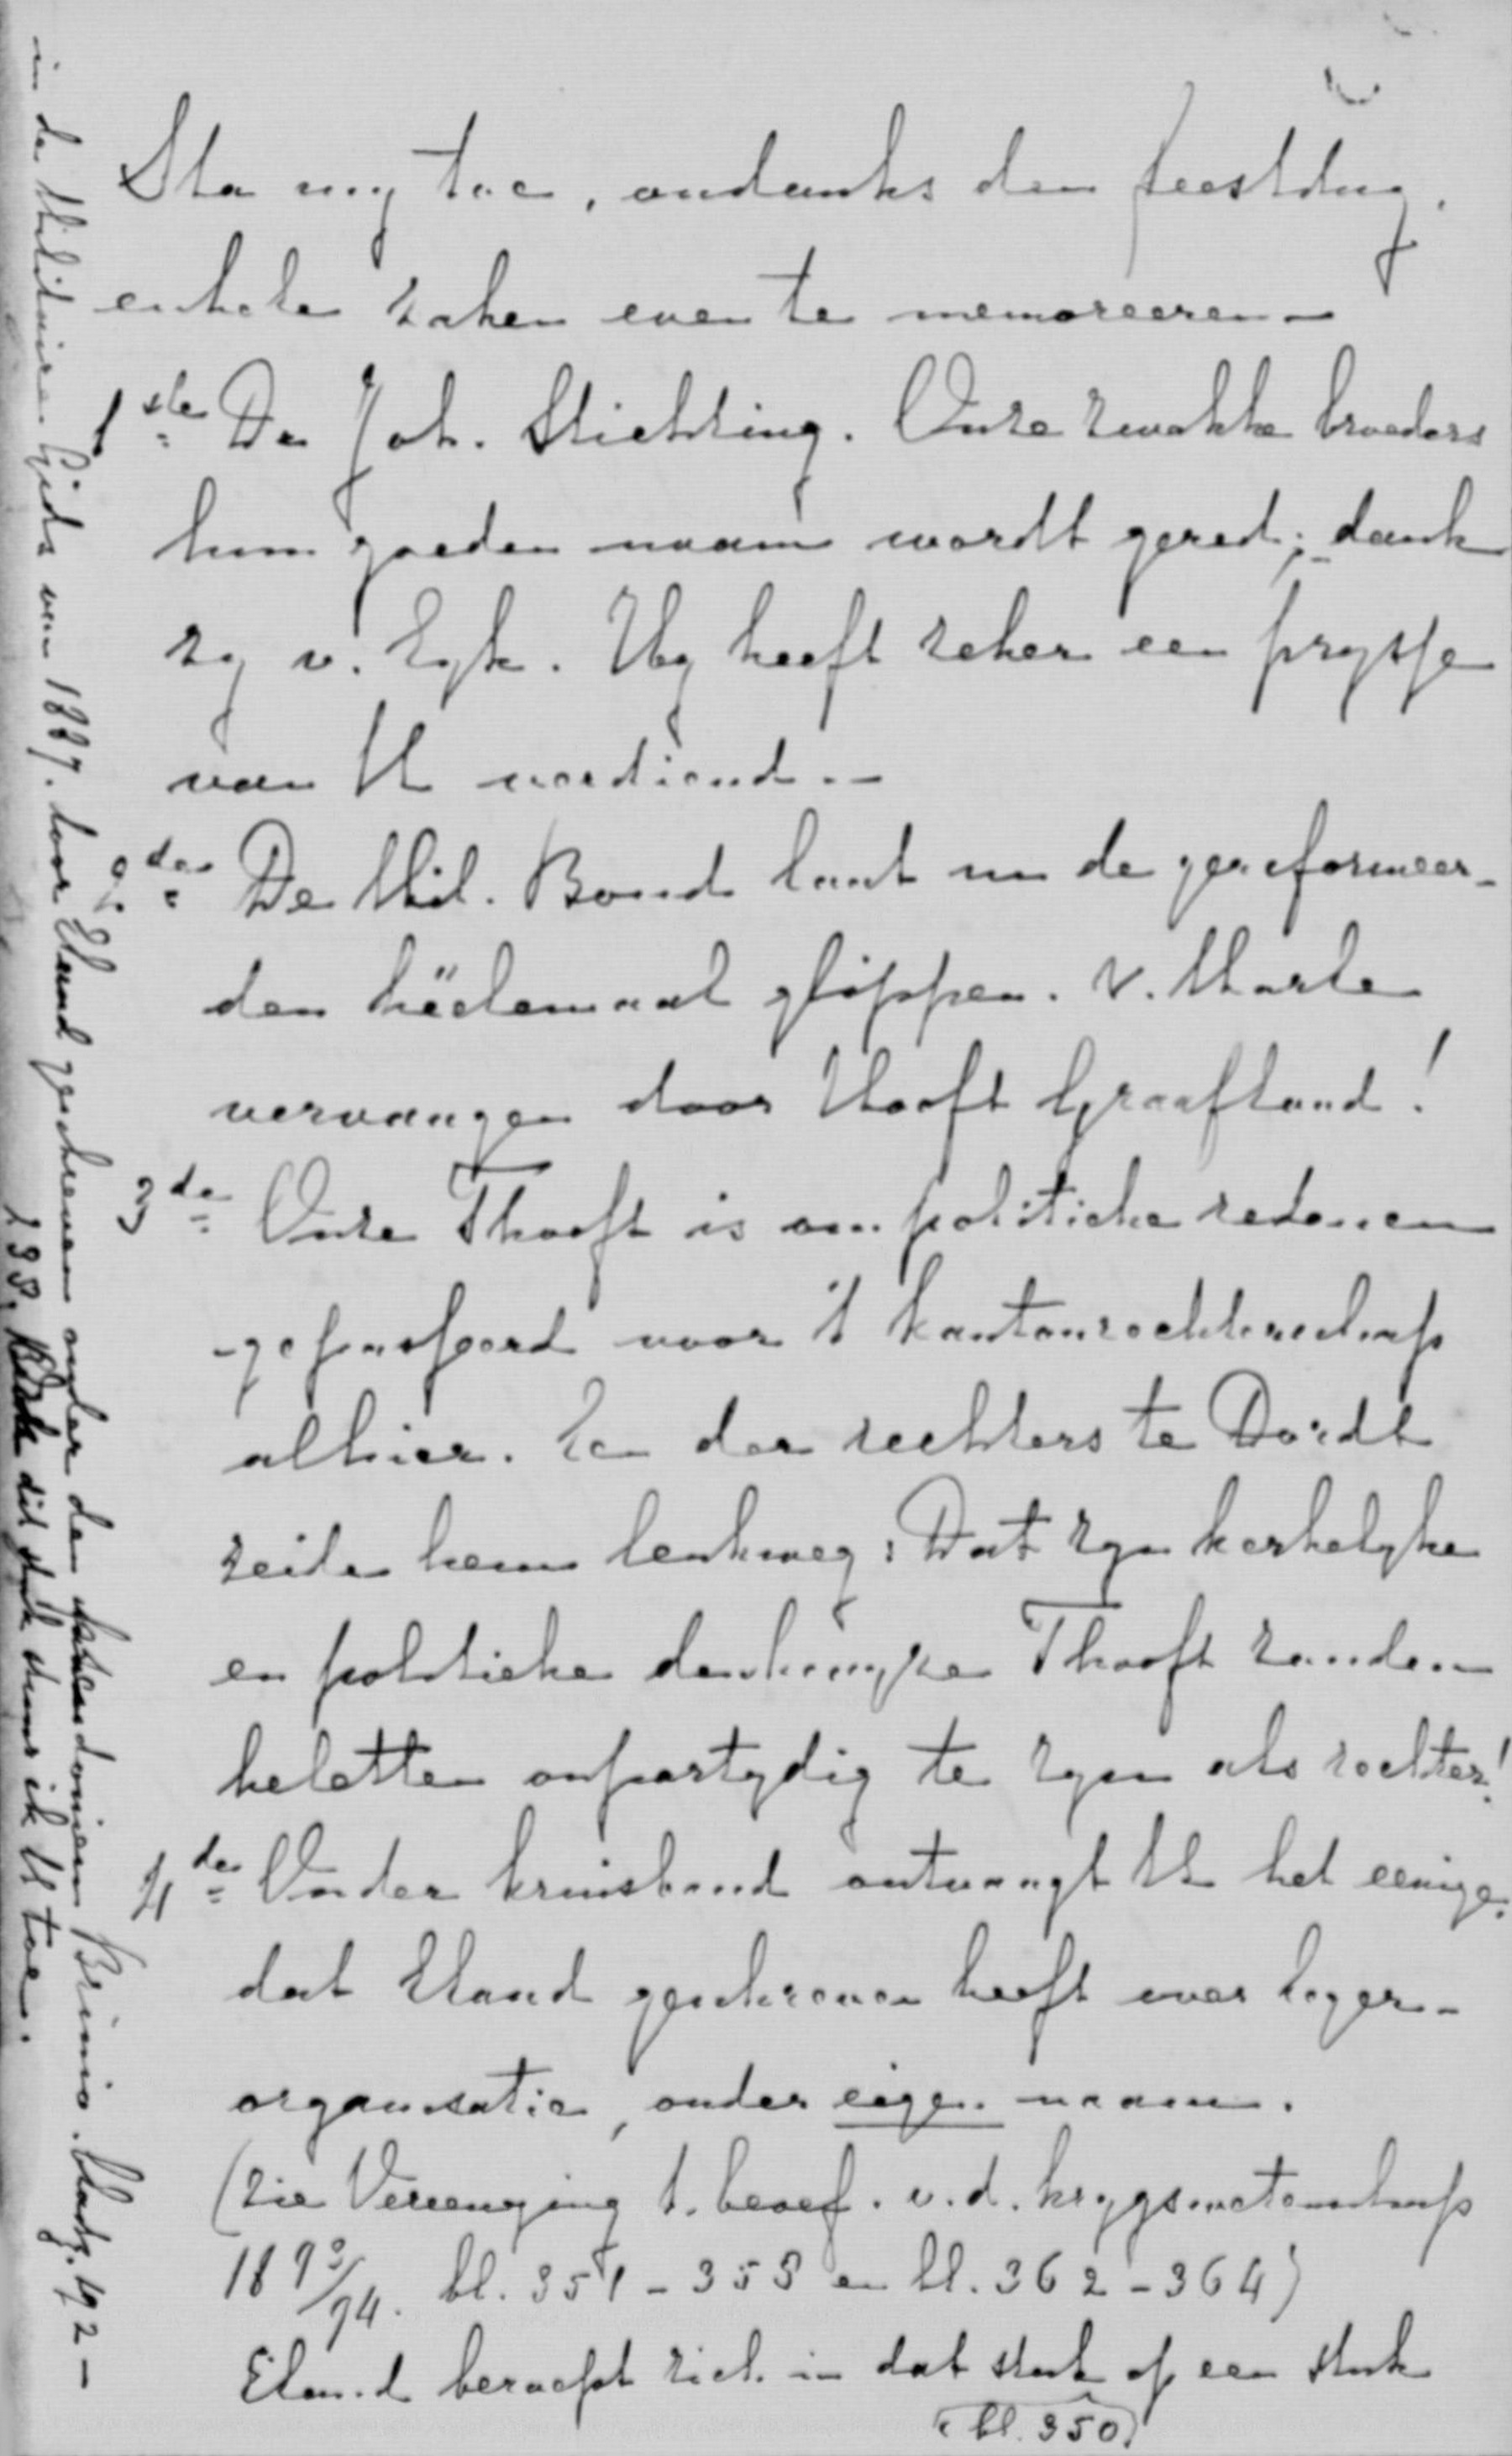 Sta my toe, ondanks den feestdag,
enkele zaken even te memoreeren –
1ste De Joh. Stichting. Onze zwakke broeders
hun goeden naam wordt gered; dank
zy v. Eyk. Hy heeft zeker een prysje
van U verdiend. –
2de De Mil. Bond laat nu de gereformeer-
den héélemaal glippen. v. Marle
vervangen door Hooft Graafland!
3de Onze Thooft is om politieke redenen
-gepasseerd voor 't kantonrechterschap
alhier. Een der rechters te Dordt
zeide hem leukweg: Dat zyn kerkelyke
en politieke denkwyze Thooft zouden
beletten onpartydig te zyn als rechter!
4de Onder kruisband ontvangt U het eenige,
dat Eland geschreven heeft over leger-
organisatie, onder eigen naam.
(zie Vereeniging t. beoef. v. d. krygswetenschap
1893/94. bl. 351 – 358 en bl. 362 – 364)
Eland beroept zich in dat stuk op een stuk
(bl. 350)
in de Militaire Gids van 1887. door Eland geschreven onder den pseudoniem Brinio. bladz. 192 –
198. dit stuk stuur ik U toe.